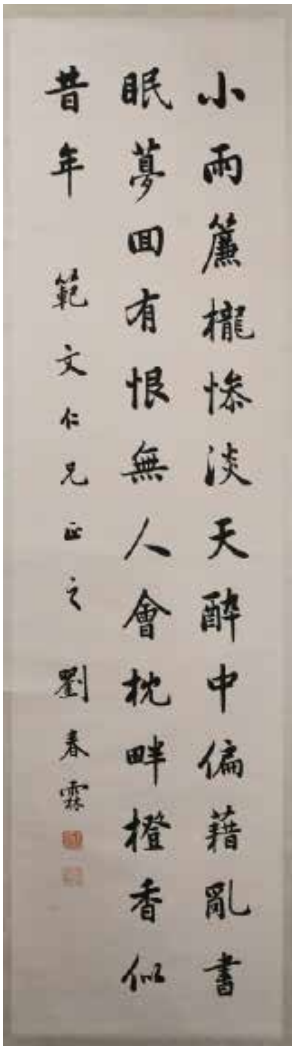 小雨簾櫳慘淡天醉中偏藉亂書
眠夢回有恨無人會枕畔橙香似
昔年 範文仁兄正之 劉春霖